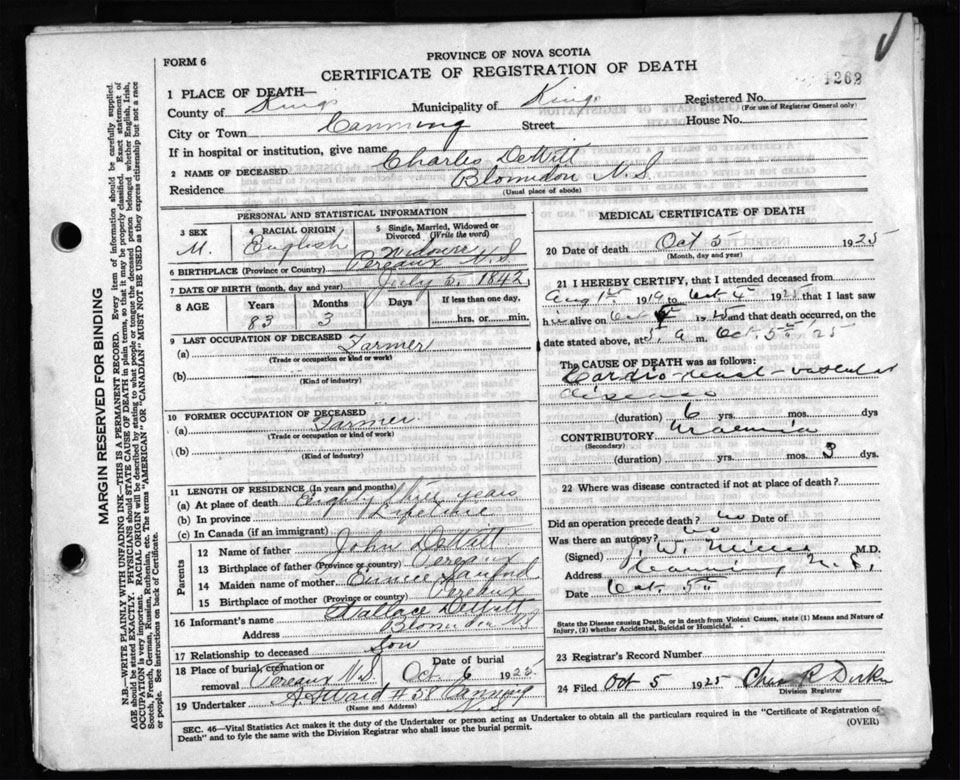 FORM 6
PROVINCE OF NOVA SCOTIA
CERTIFICATE OF REGISTRATION OF DEATH
1262
1 PLACE OF DEATH—
County of Kings Municipality of Kings Registered No.
(For use of Registrar General only)
City or Town Canning Street House No.
If in hospital or institution, give name
2 NAME OF DECEASED Charles DeWitt
Residence Blomidon N.S.
(Usual place of abode)
PERSONAL AND STATISTICAL INFORMATION
3 SEX 4 RACIAL ORIGIN 5 Single, Married, Widowed or Divorced (Write the word)
M. English Widower
6 BIRTHPLACE (Province or Country) Pereaux N.S.
7 DATE OF BIRTH (month, day and year) July 5, 1842
8 AGE Years Months Days If less than one day,
83 3 hrs. or min.
9 LAST OCCUPATION OF DECEASED
(a) Farmer
(Trade or occupation or kind of work)
(b)
(Kind of industry)
10 FORMER OCCUPATION OF DECEASED
(a) Farmer
(Trade or occupation or kind of work)
(b)
(Kind of industry)
11 LENGTH OF RESIDENCE (In years and months)
(a) At place of death Eighty three years
(b) In province Lifetime
(c) In Canada (if an immigrant)
Parents
12 Name of father John DeWitt
13 Birthplace of father (Province or country) Pereaux
14 Maiden name of mother Eunice Sanford
15 Birthplace of mother (Province or Country) Pereaux
16 Informant's name Wallace DeWitt
Address Blomidon N.S.
17 Relationship to deceased Son
18 Place of burial, cremation or removal Pereaux N.S. Date of burial Oct 6 1925
19 Undertaker A. S. Ward #38 Canning N.S.
(Name and Address)
MEDICAL CERTIFICATE OF DEATH
20 Date of death Oct 5 1925
(Month, day and year)
21 I HEREBY CERTIFY, that I attended deceased from
Aug 1st 19 to Oct 4th 1925 that I last saw
h alive on Oct 1925 and that death occurred, on the
date stated above, at 5 a m. Oct 5th 25
The CAUSE OF DEATH was as follows:
Cardio renal-vascular
disease
(duration) 6 yrs. mos. days
CONTRIBUTORY Uraemia
(Secondary)
(duration) yrs. mos. 3 dys.
22 Where was disease contracted if not at place of death?
Did an operation precede death? no Date of
Was there an autopsy? no
(Signed) J. W. Miller M.D.
Address Canning N.S.
Date Oct. 5th
State the Disease causing Death, or in death from Violent Causes, state (1) Means and Nature of Injury, (2) whether Accidental, Suicidal or Homicidal.
23 Registrar's Record Number
24 Filed Oct 5 1925 Chas R
Division Registrar
SEC. 46—Vital Statistics Act makes it the duty of the Undertaker or person acting as Undertaker to obtain all the particulars required in the "Certificate of Registration of
Death" and to fyle the same with the Division Registrar who shall issue the burial permit.
(OVER)
MARGIN RESERVED FOR BINDING
N.B.—WRITE PLAINLY WITH UNFADING INK—THIS IS A PERMANENT RECORD. Every item of information should be carefully supplied.
AGE should be stated EXACTLY. PHYSICIANS should STATE CAUSE OF DEATH in plain terms, so that it may be properly classified. Exact statement of
OCCUPATION is very important. RACIAL ORIGIN will be described by stating to what people or tongue the deceased person belonged whether English, Irish,
Scotch, French, German, Russian, Ruthenian, etc. The terms "AMERICAN" or "CANADIAN" MUST NOT BE USED as they express citizenship but not a race
or people. See instructions on back of Certificate.